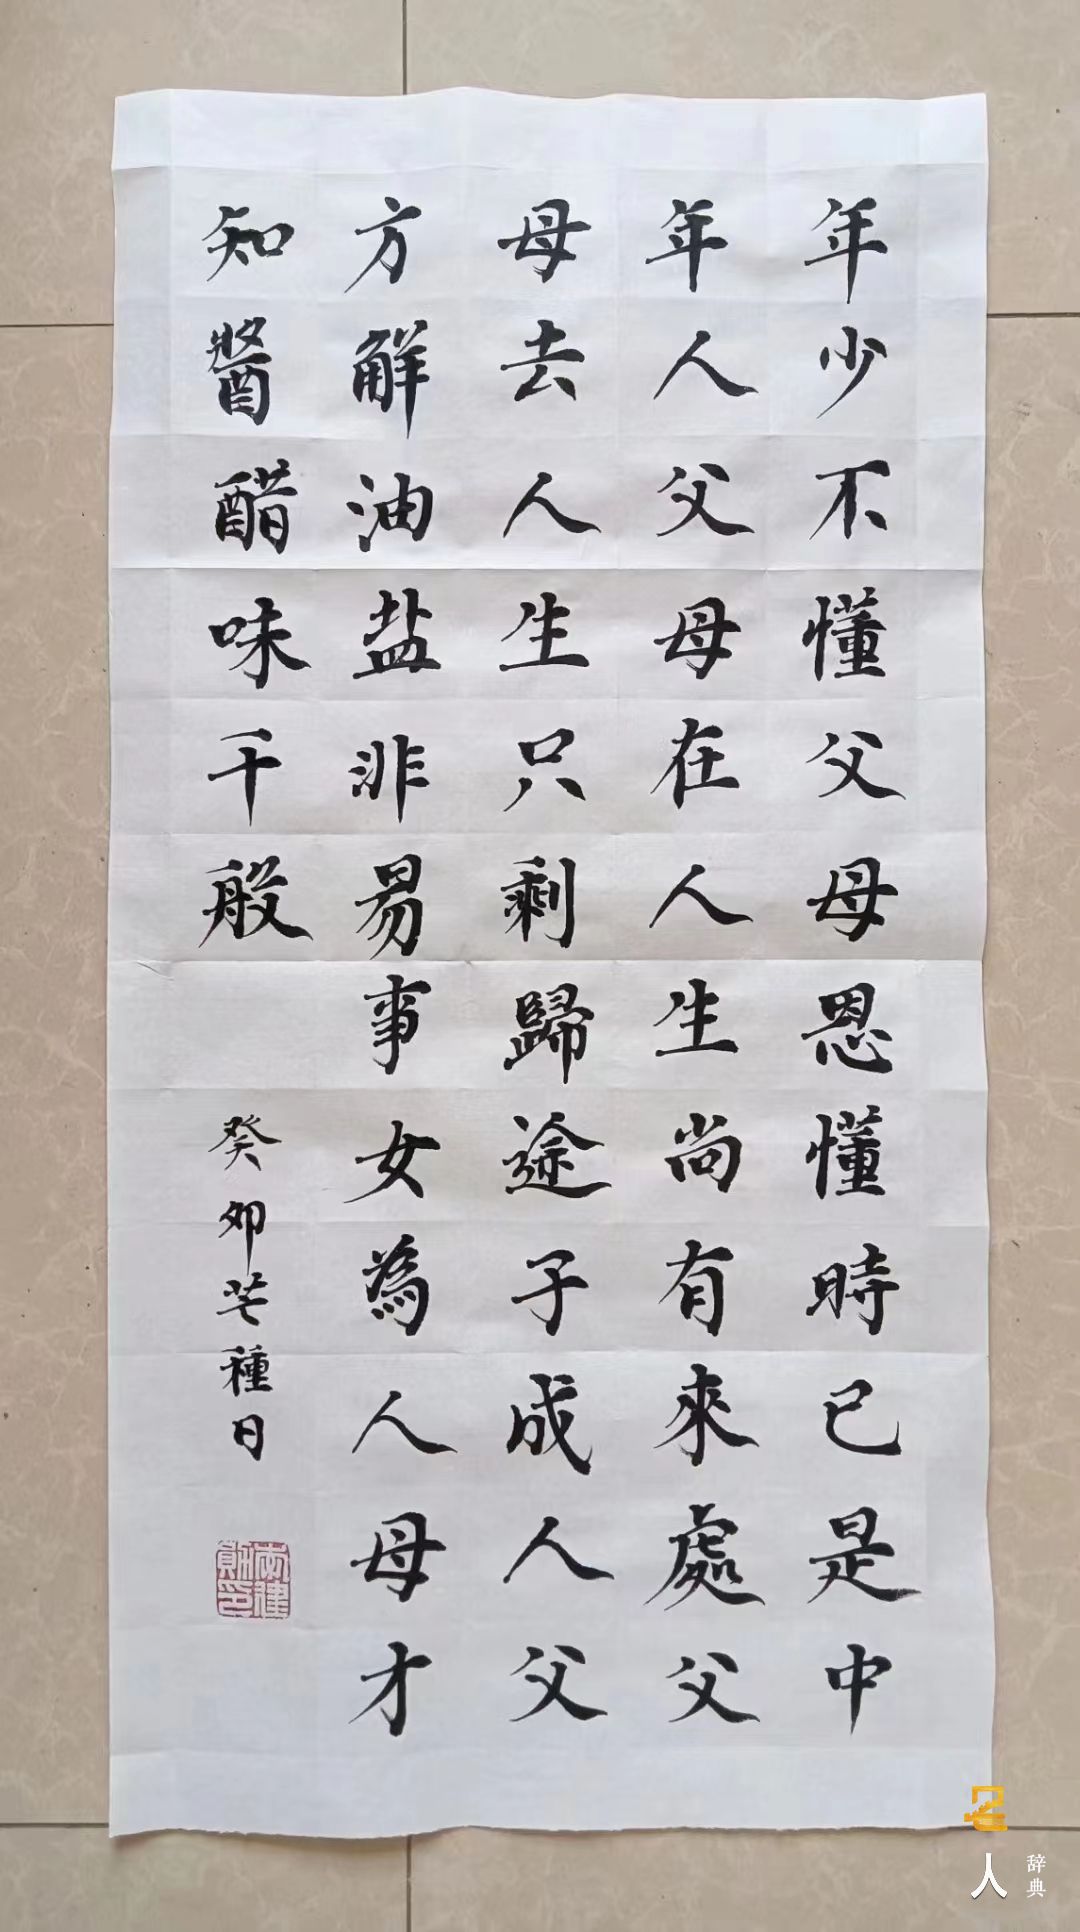 年少不懂父母恩懂時已是中
年人父母在人生尚有來處父
母去人生只剩歸途子成人父
方解油盐非易事女為人母才
知醬醋味千般
癸卯芒種日
人
辞典